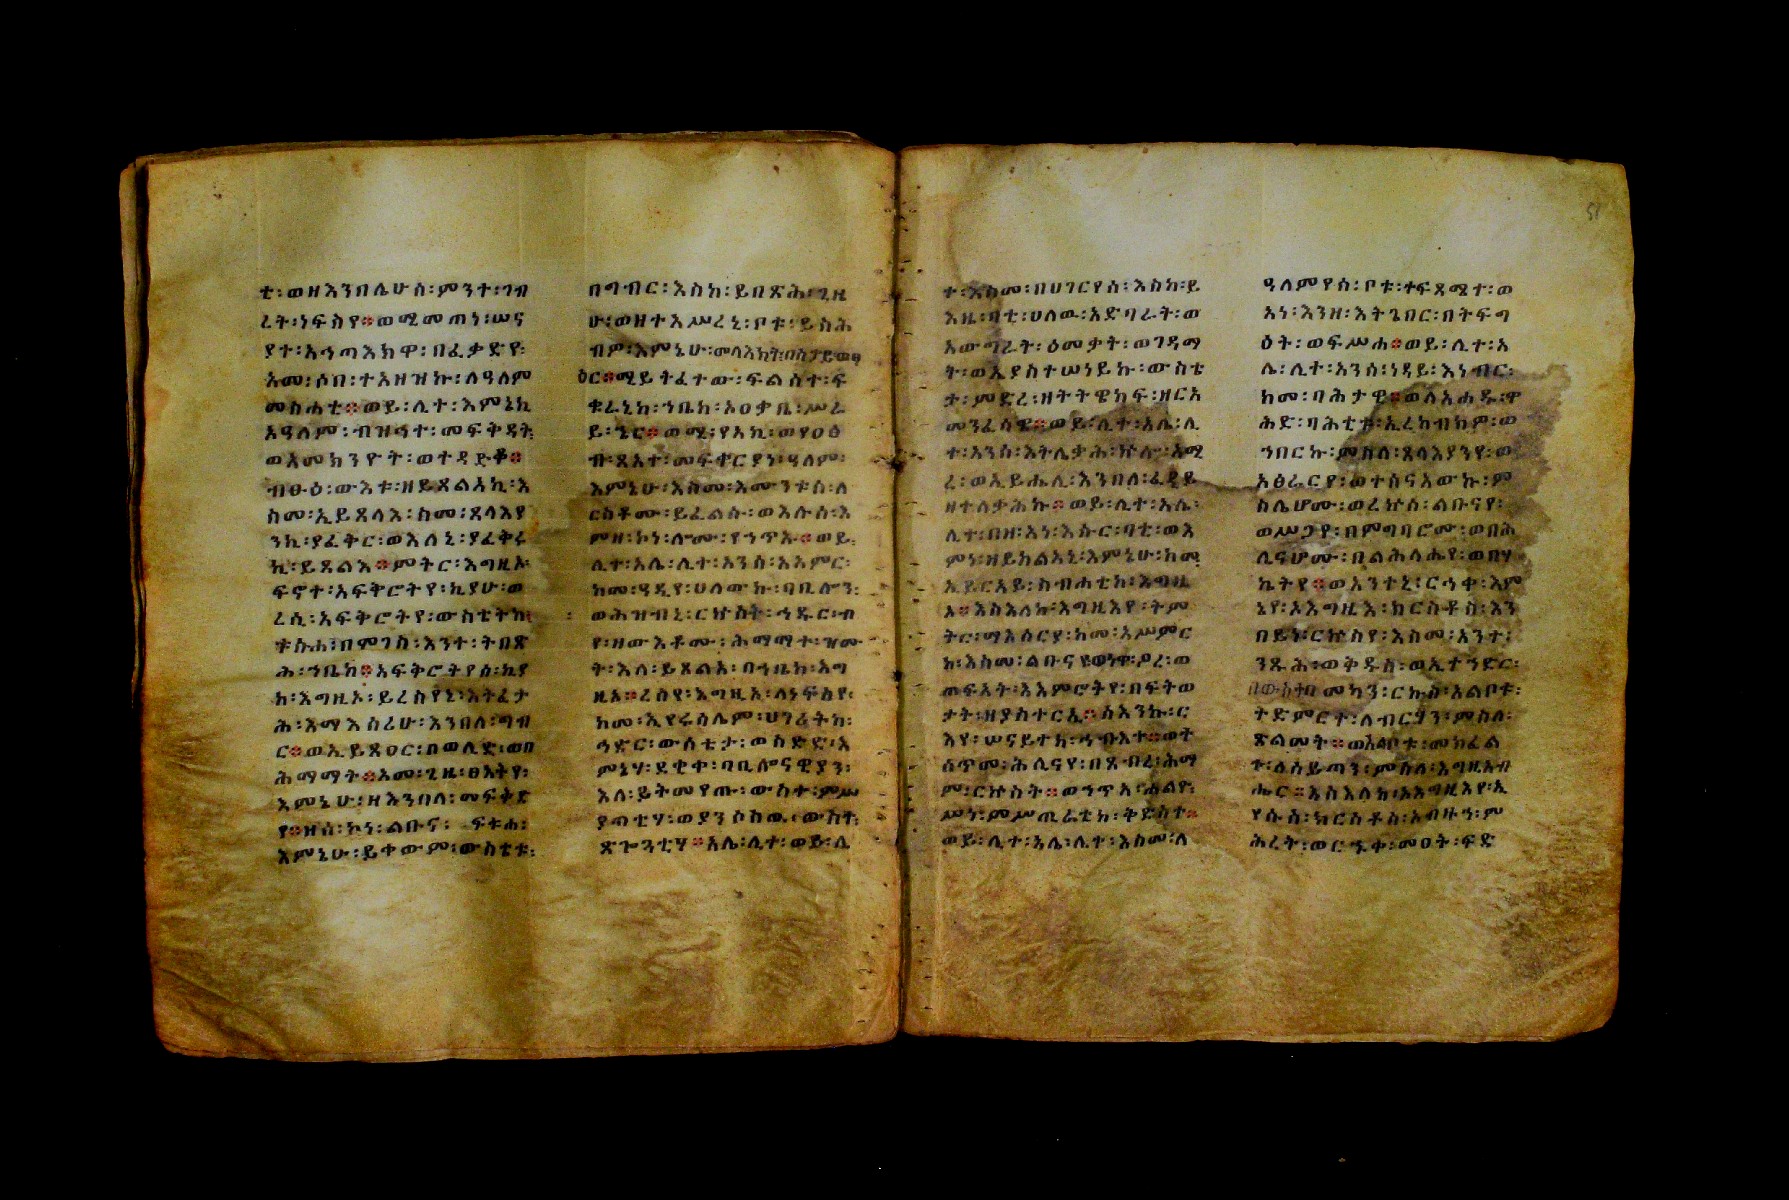 ቲ፡ወዘእንበሌሁሰ፡ምንተ፡ገብ
ረት፡ነፍስየ። ወሚመጠነ፡ሠና
ያተ፡አኅጣእክዋ፡በፈቃድየ፡
አመ፡ሶበ፡ተአዘዝኩ፡ለዓለም
መስሐቲ። ወይ፡ሊተ፡እምኔኪ
አዓለም፡ብዝኅተ፡መፍቅዳት፡
ወእመክንዮት፡ወተዳድቆ።
ብፁዕ፡ውእቱ፡ዘይጸልአኪ፡እ
ስመ፡ኢይጸላእ፡ስመ፡ጸላእየ
ንኪ፡ያፈቅር፡ወእለኒ፡ያፈቅሩ
ኪ፡ይጸልእ። ምትር፡እግዚኦ፡
ፍኖተ፡አፍቅሮትየ፡ኪያሁ፡ወ
ረሲ፡አፍቅሮትየ፡ውስቴትከ፡
ቱስሐ፡በምገስ፡እንተ፡ትበጽ
ሕ፡ኀቤከ። አፍቅሮትየሰ፡ኪያ
ከ፡እግዚኦ፡ይረስየኒ፡እትፈታ
ሕ፡እማእስሪሁ፡እንበለ፡ግብ
ር። ወኢይጸዐር፡በወሊድ፡ወበ
ሕማማት። አመ፡ጊዜ፡ፀአትየ፡
እምኔሁ፡ዘእንበለ፡መፍቅድ
የ። ዘሰ፡ኮነ፡ልቡና፡ ፍቱሐ፡
እምኔሁ፡ይቀውም፡ውስቴቱ፡
በግብር፡እስከ፡ይበጽሕ፡ጊዜ
ሁ፡ወዘተእሥረኒ፡ቦቱ፡ይስሕ
ብዎ፡እምኔሁ፡መላእክት፡
ዕር። ሚይትፈተው፡ፍልሰተ፡ፍ
ቁራኒከ፡ኀቤከ፡አዐቃቤ፡ሥራ
ይ፡ኄር። ወሚ፡የአኪ፡ወየዐፅ
ብ፡ጸአተ፡መፍቀርያነ፡ዓለም፡
እምኔሁ፡እስመ፡እሙንቱሰ፡ለ
ርስቶሙ፡ይፈልሱ፡ወእሉሰ፡እ
ምዘ፡ኮነ፡ሎሙ፡የኀጥኡ። ወይ፡
ሊተ፡አሌ፡ሊተ፡አንሰ፡አአምር፡
ከመ፡ዓዲየ፡ሀለውኩ፡ባቢሎን፡
ወሕዝብኒ፡ርኵስት፡ኅዱር፡ብ
የ፡ዘውእቶሙ፡ሕማማተ፡ዝሙ
ት፡እለ፡ይጸልአ፡በኀቤከ፡እግ
ዚአ። ረስያ፡እግዚአ፡ለነፍስየ፡
ከመ፡ኢየሩሳሌም፡ሀገሪትከ፡
ኅድር፡ውስቴታ፡ወስድድ፡እ
ምኔሃ፡ደቂቀ፡ባቢሎናዊያን፡
እለ፡ይትመየጡ፡ውስተ፡ምሥ
ያጣቲሃ፡ወያንሶስዉ፡ውስተ፡
ጽጐጓቲሃ። አሌ፡ሊተ፡ወይ፡ሊ
ተ፡እስመ፡በሀገርየሰ፡እስከ፡ይ
እዜ፡ባቲ፡ሀለዉ፡አድባራት፡ወ
አውግራት፡ዕመቃት፡ወገዳማ
ት፡ወኢያስተሠነይኩ፡ውስቴ
ታ፡ምድረ፡ዘትትዌከፍ፡ዘርአ
መንፈሳዌ። ወይ፡ሊተ፡አሌ፡ሊ
ተ፡አንሰ፡እትሌቃሕ፡ኵሎ፡አሚ
ረ፡ወኢይሔሊ፡እንበለ፡ፈዲይ
ዘተለቃሕኩ። ወይ፡ሊተ፡አሌ፡
ሊተ፡በዘ፡አነ፡እሱር፡ባቲ፡ወእ
ምነ፡ዘይከልአኒ፡እምኔሁ፡ከመ
ኢይርአይ፡ስብሐቲከ፡እግዚ
አ። እስእለከ፡እግዚእየ፡ትም
ትር፡ማእሰርየ፡ከመ፡አሥምር
ከ፡እስመ፡ልቡናየ ዖረ፡ወ
ጠፍአት፡አእምሮትየ፡በፍትወ
ታት፡ዘያስተርኢ። ስአንኩ፡ር
እየ፡ሠናይተከ፡ኅብእተ። ወተ
ሰጥመ፡ሕሊናየ፡በጸብረ፡ሕማ
ም፡ርኵስት። ወኀጥአ፡ሐልዮ፡
ሥነ፡ምሥጢራቲከ፡ቅድስት።
ወይ፡ሊተ፡አሌ፡ሊተ፡እስመ፡ለ
ዓለምየሰ፡ቦቱ፡ተፍጻሜተ፡ወ
አነ፡እንዘ፡እትጌበር፡በትፍግ
ዕት፡ወፍሥሐ። ወይ፡ሊተ፡አ
ሌ፡ሊተ፡አንሰ፡ነዳይ፡እነብር፡
ከመ፡ባሕታዊ። ወለአሐዱ፡ዋ
ሕድ፡ባሕቲቱ፡ኢረከብክዎ፡ወ
ኀበርኩ፡ምስለ፡ጸላእያንየ፡ወ
አፅራርየ፡ወተሰናአውኩ፡ም
ስሌሆሙ፡ወረኵሰ፡ልቡናየ፡
ወሥጋየ፡በምግባሮሙ፡ወበሕ
ሊናሆሙ፡በልሕላሔየ፡ወበሃ
ኬትየ። ወአንተኒ፡ርኅቀ፡እም
ኔየ፡አእግዚእ፡ክርስቶስ፡እን
በይነ፡ርኵስየ፡እስመ፡አንተ፡
ንጹሕ፡ወቅዱስ፡ወኢተኀድር፡
በውስተ መካን፡ርኩስ፡አልቦቱ፡
ተድምርተ፡ለብርሃን፡ምስለ፡
ጽልመት። ወአልቦቱ፡መክፈል
ተ፡ለሰይጣን፡ምስለ፡እግዚአብ
ሔር። እስእለከ፡አእግዚእየ፡ኢ
የሱስ፡ክርስቶስ፡አብዝኀ፡ም
ሕረት፡ወርኁቀ፡መዐት፡ፍድ